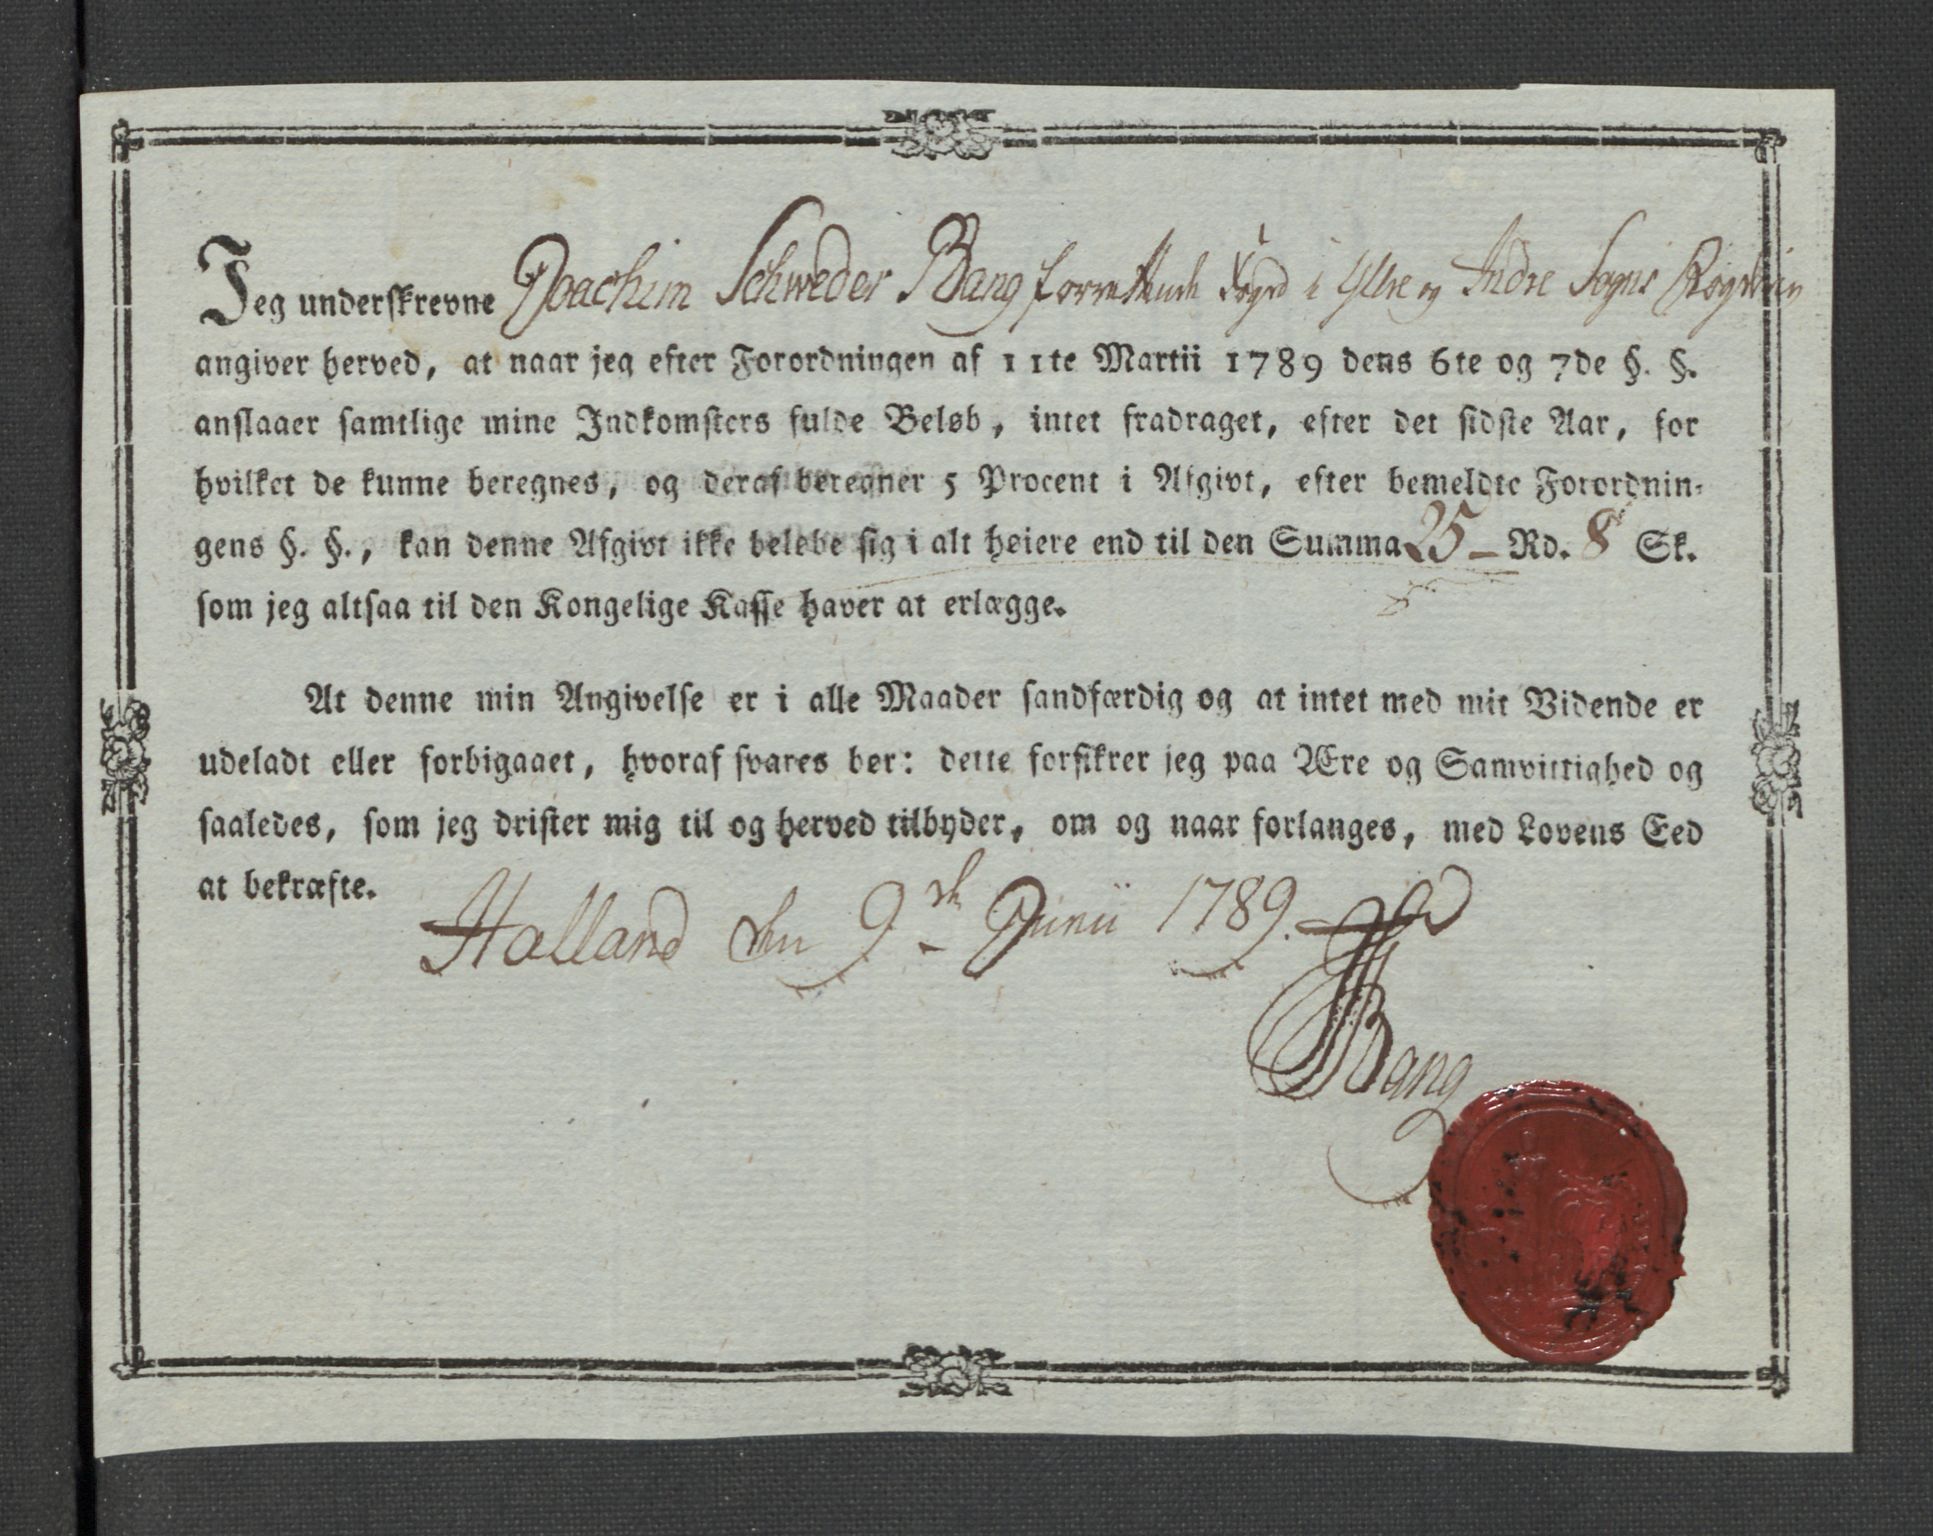 Jeg underskrevne Joachim Schweder Bang forrettende Fogd i Yttre og Indre Sogns Fogderie
angiver herved, at naar jeg efter Forordningen af 11te Martii 1789 dens 6te og 7de §. §.
anslaaer samtlige mine Indkomsters fulde Beløb, intet fradraget, efter det sidste Aar, for
hvilket de kunne beregnes, og deraf beregner 5 Procent i Afgivt, efter bemeldte Forordnin-
gens §. §., kan denne Afgivt ikke beløbe sig i alt høiere end til den Summa 25 – Rd. 8 Sk.
som jeg altsaa til den Kongelige Kasse haver at erlægge.
At denne min Angivelse er i alle Maader sandfærdig og at intet med mit Vidende er
udeladt eller forbigaaet, hvoraf svares bør: dette forsikrer jeg paa Ære og Samvittighed og
saaledes, som jeg drister mig til og herved tilbyder, om og naar forlanges, med Lovens Eed
at bekræfte.
Halland den 9de Junii 1789.
Bang